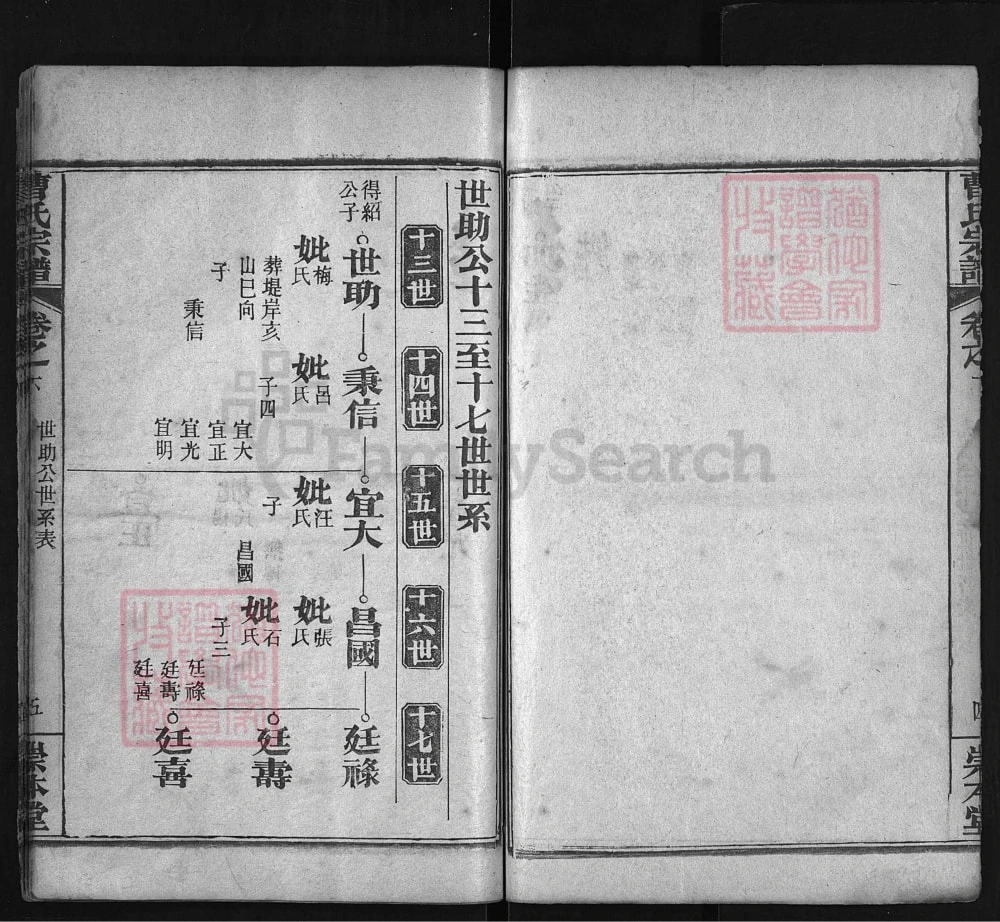 曹氏宗譜
卷之
崇本堂
世助公十三至十七世世系
十三世
十四世
十五世
十六世
十七世
得紹
公子
世助
妣梅氏
葬堤岸亥
山巳向
子
秉信
秉信
妣呂氏
子四
宜大
宜正
宜光
宜明
宜大
妣汪氏
子
昌國
昌國
妣張氏
妣石氏
子三
廷祿
廷壽
廷喜
廷祿
廷壽
廷喜
曹氏宗譜
卷之六
世助公世系表
五
崇本堂
FamilySearch